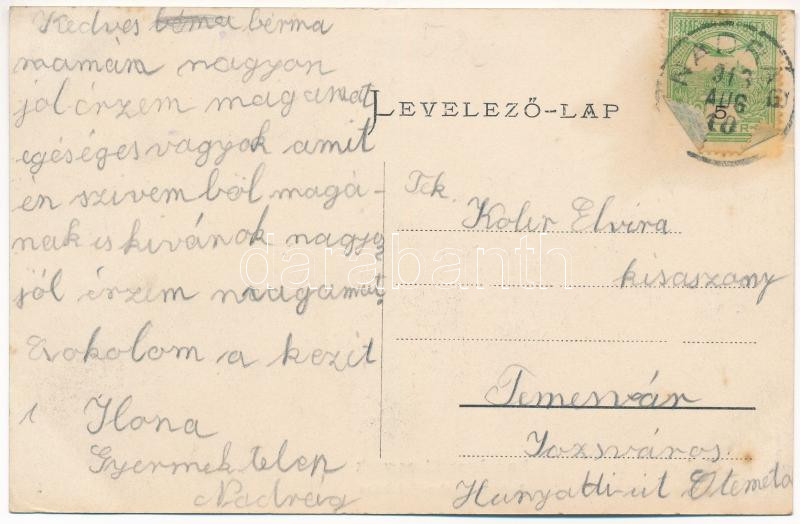 Kedves béma bérma
mamám nagyon
jól érzem magamat
egéséges vagyok amit
én szivemböl magá-
nak is kivánok nagyo
jól érzem magamat
a kezit
Ilona
Gyermektelep
Nadrág
LEVELEZŐ-LAP
NADRÁG
913
AUG
10
5
Tek.
Kolir Elvira
kisaszony
Temesvár
Jozsváros
Hunyadi-út Otemeto
darabanth